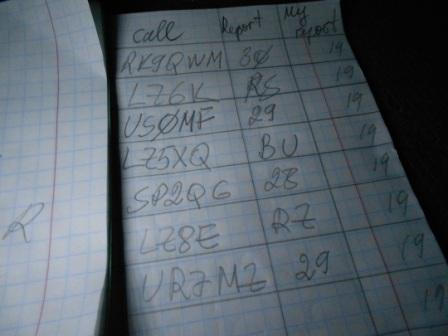 Call Report My report
RK9QWM 30 19
LZ6K RS 19
US0MF 29 19
LZ5XQ BU 19
SP2QG 28 19
LZ8E RZ 19
UR7MZ 29 19
19
R